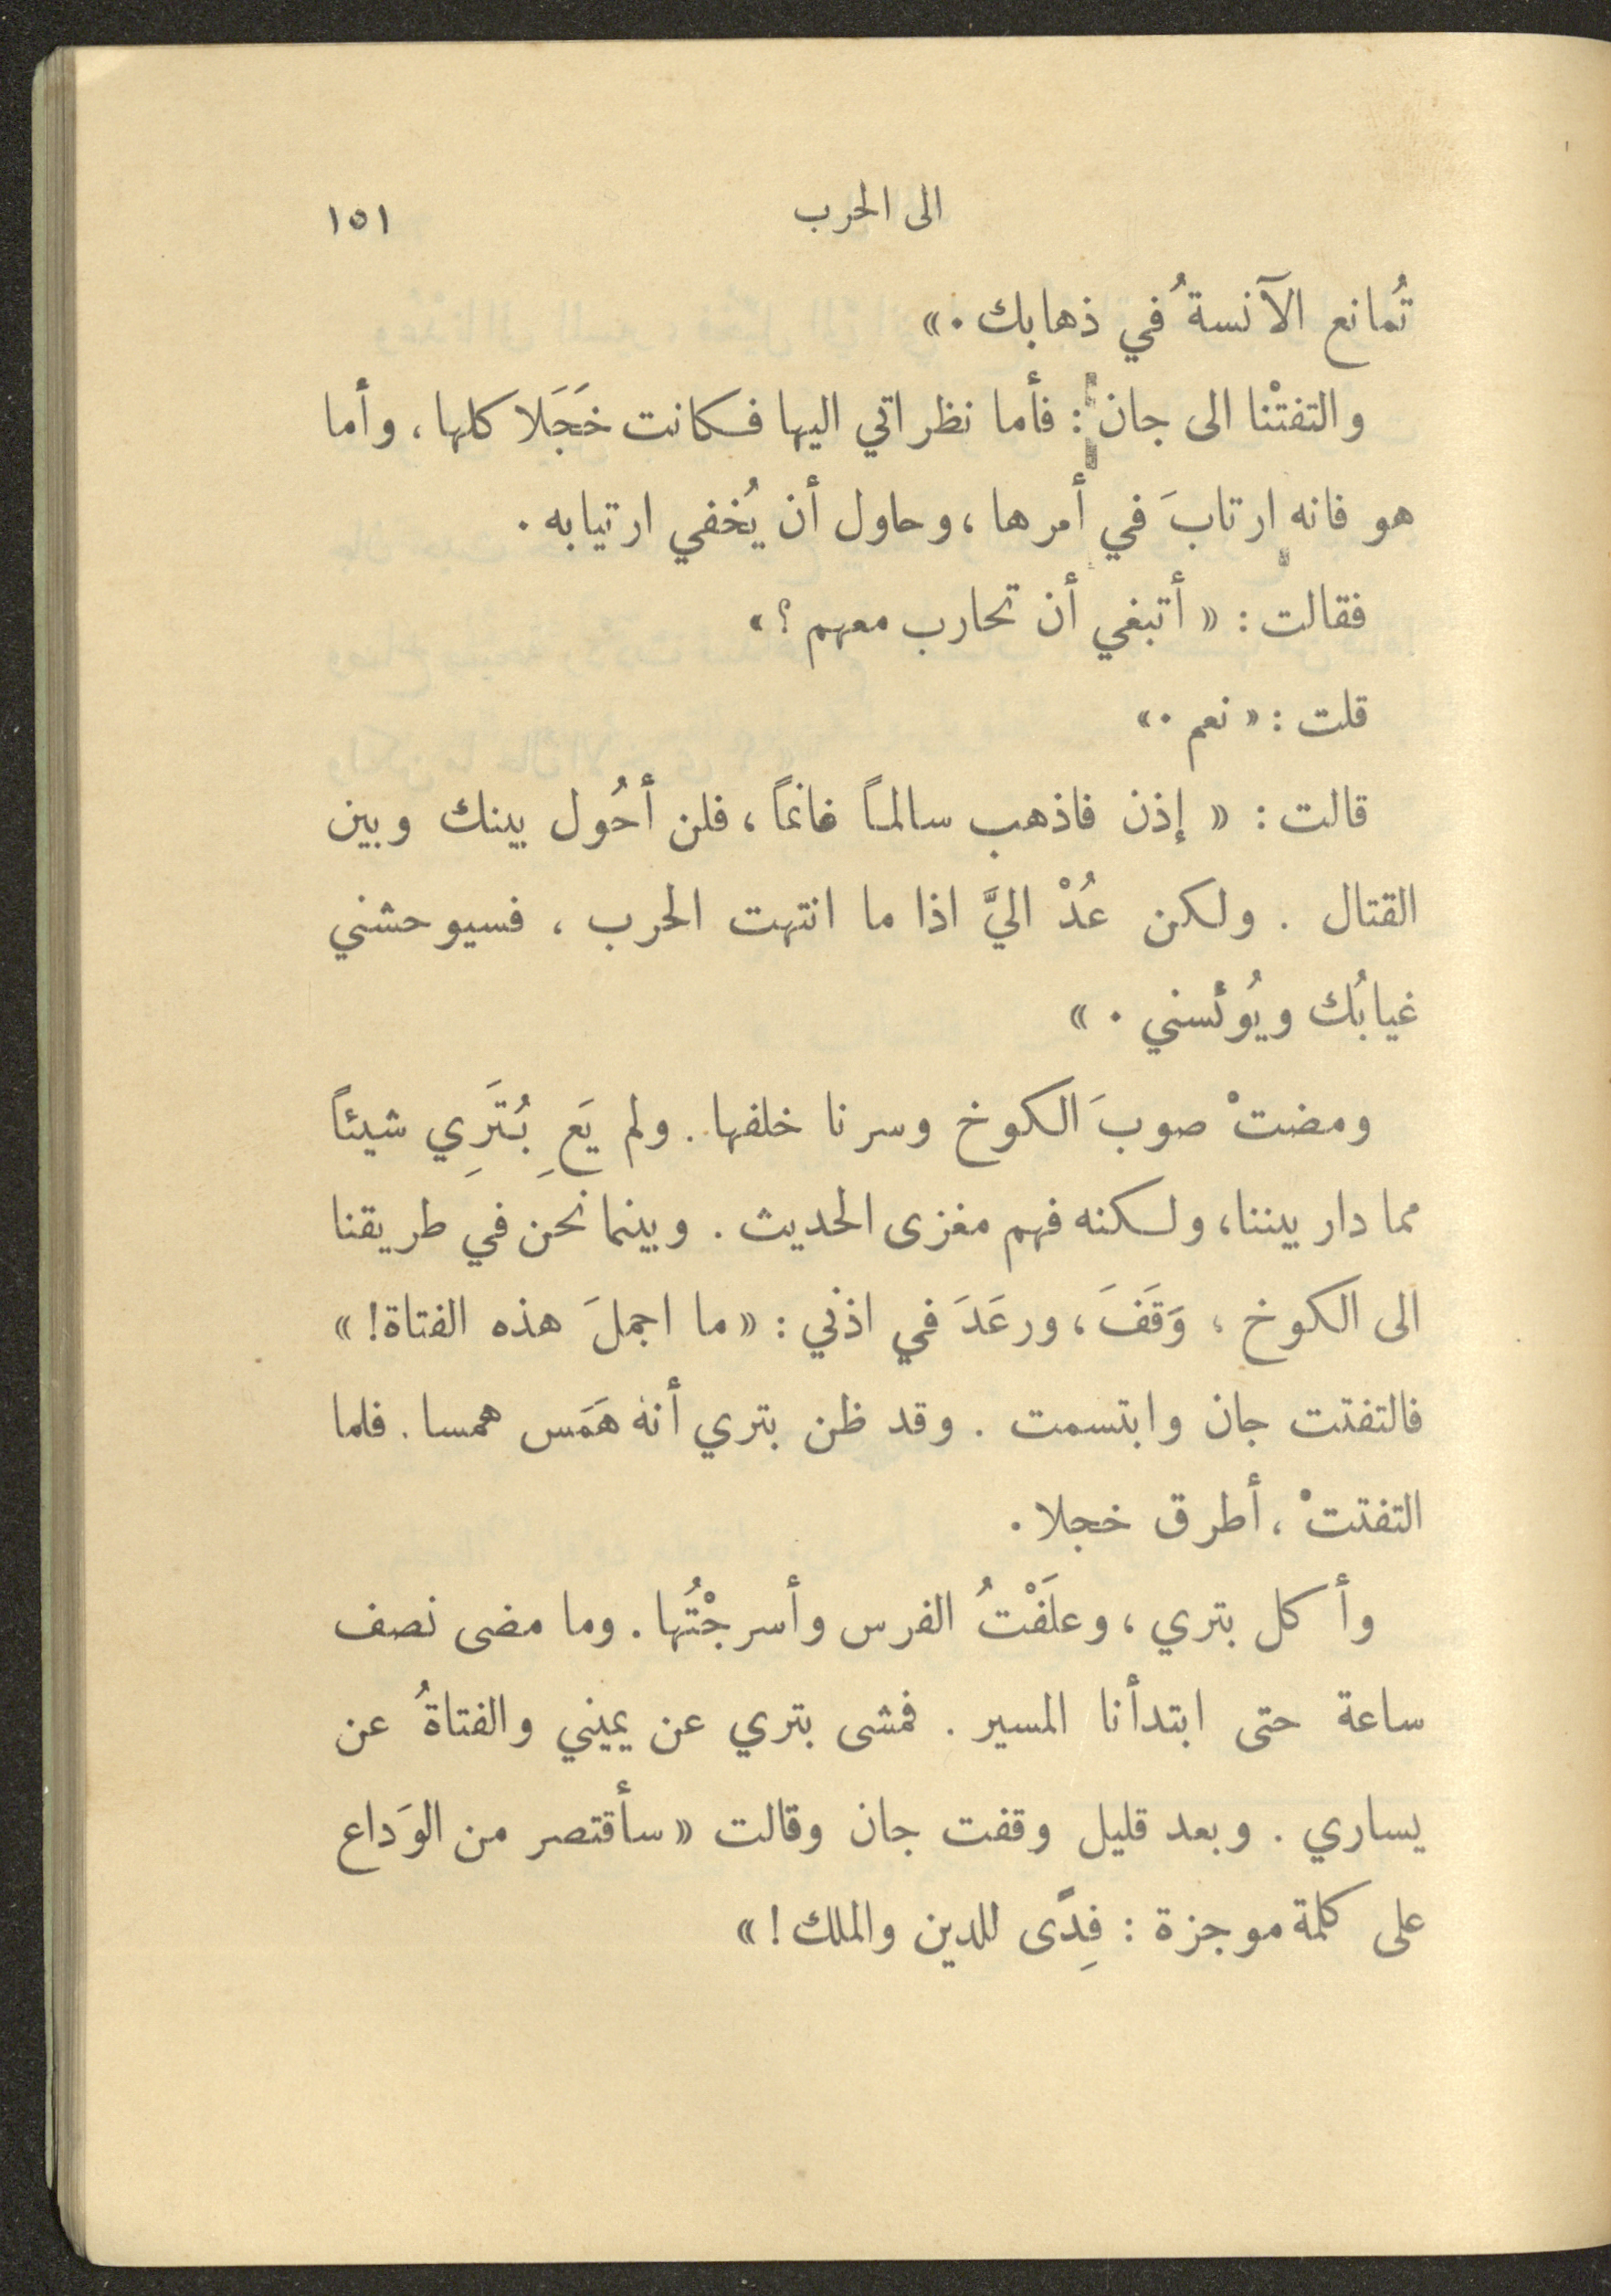 الى الحرب ١٥١
تُمانع الآنسةُ في ذهابك . »
والتفتْنا الى جان : فأما نظراتي اليها فكانت خَجَلا كلها ، وأما
هو فانه ارتابَ في أمرها ، وحاول أن يُخفي ارتيابه .
فقالت : « أتبغي أن تحارب معهم ؟ »
قلت : « نعم . »
قالت : « إذن فاذهب سالماً غانماً ، فلن أحُول بينك وبين
القتال . ولكن عُدْ اليَّ اذا ما انتهت الحرب ، فسيوحشني
غيابُك ويُوئسني . »
ومضتْ صوبَ الكوخ وسرنا خلفها . ولم يَعِ بُتَرِي شيئاً
مما دار بيننا ، ولكنه فهم مغزى الحديث . وبينما نحن في طريقنا
الى الكوخ ، وَقَفَ ، ورعَدَ في اذني : « ما اجملَ هذه الفتاة ! »
فالتفتت جان وابتسمت . وقد ظن بتري أنه هَمَس همسا . فلما
التفتتْ ، أطرق خجلا .
وأكل بتري ، وعلَفْتُ الفرس وأسرجْتُها . وما مضى نصف
ساعة حتى ابتدأنا المسير . فمشى بتري عن يميني والفتاةُ عن
يساري . وبعد قليل وقفت جان وقالت « سأقتصر من الوَداع
على كلمة موجزة : فِدًى للدين والملك ! »